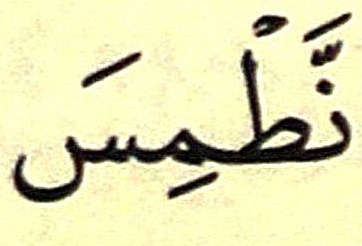 نَّطْمِسَ